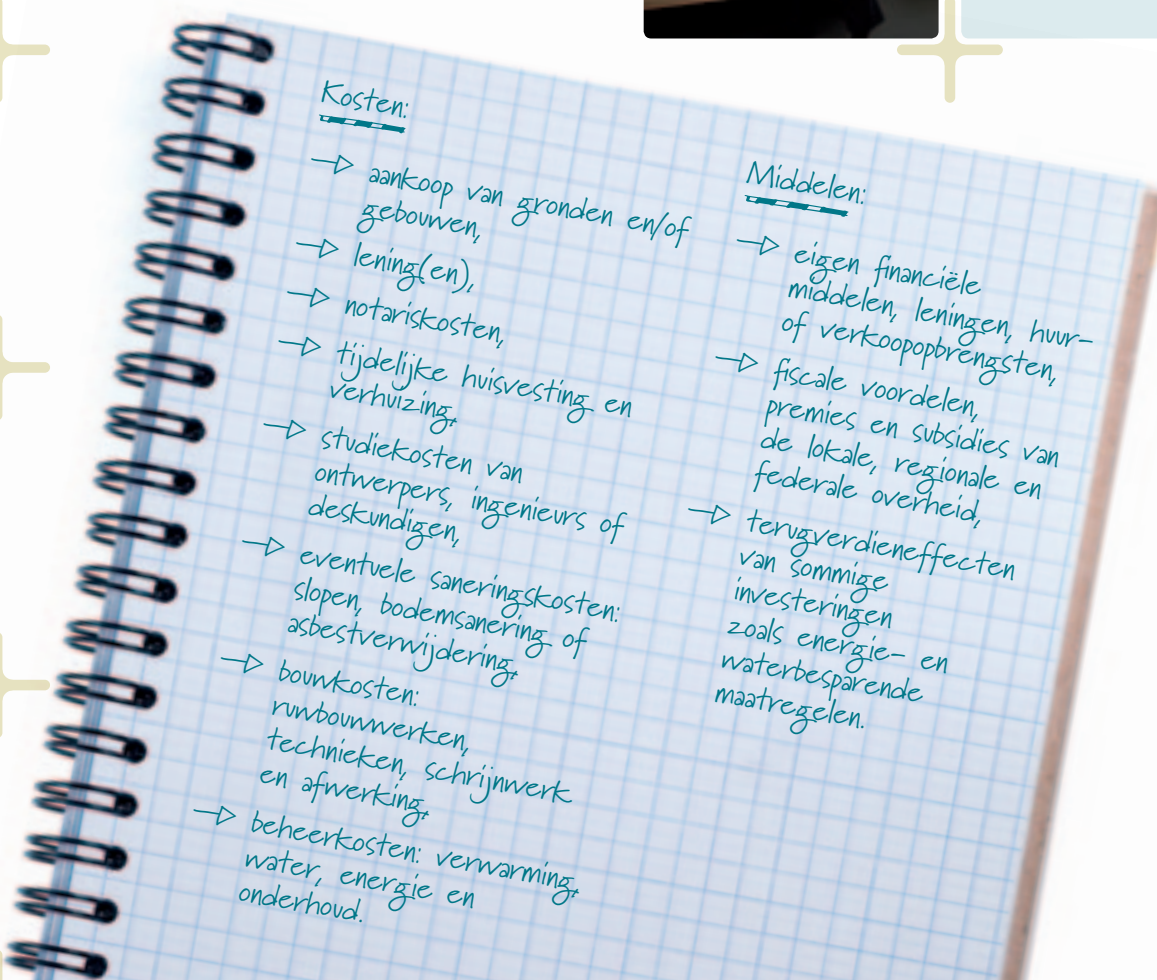 Kosten:
aankoop van gronden en/of
gebouwen,
lening(en),
notariskosten,
tijdelijke huisvesting en
verhuizing,
studiekosten van
ontwerpers, ingenieurs of
deskundigen,
eventuele saneringskosten:
slopen, bodemsanering of
asbestverwijdering,
bouwkosten:
ruwbouwwerken,
technieken, schrijnwerk
en afwerking,
beheerkosten: verwarming,
water, energie en
onderhoud.
Middelen:
eigen financiële
middelen, leningen, huur-
of verkoopopbrengsten,
fiscale voordelen,
premies en subsidies van
de lokale, regionale en
federale overheid,
terugverdieneffecten
van sommige
investeringen
zoals energie- en
waterbesparende
maatregelen.